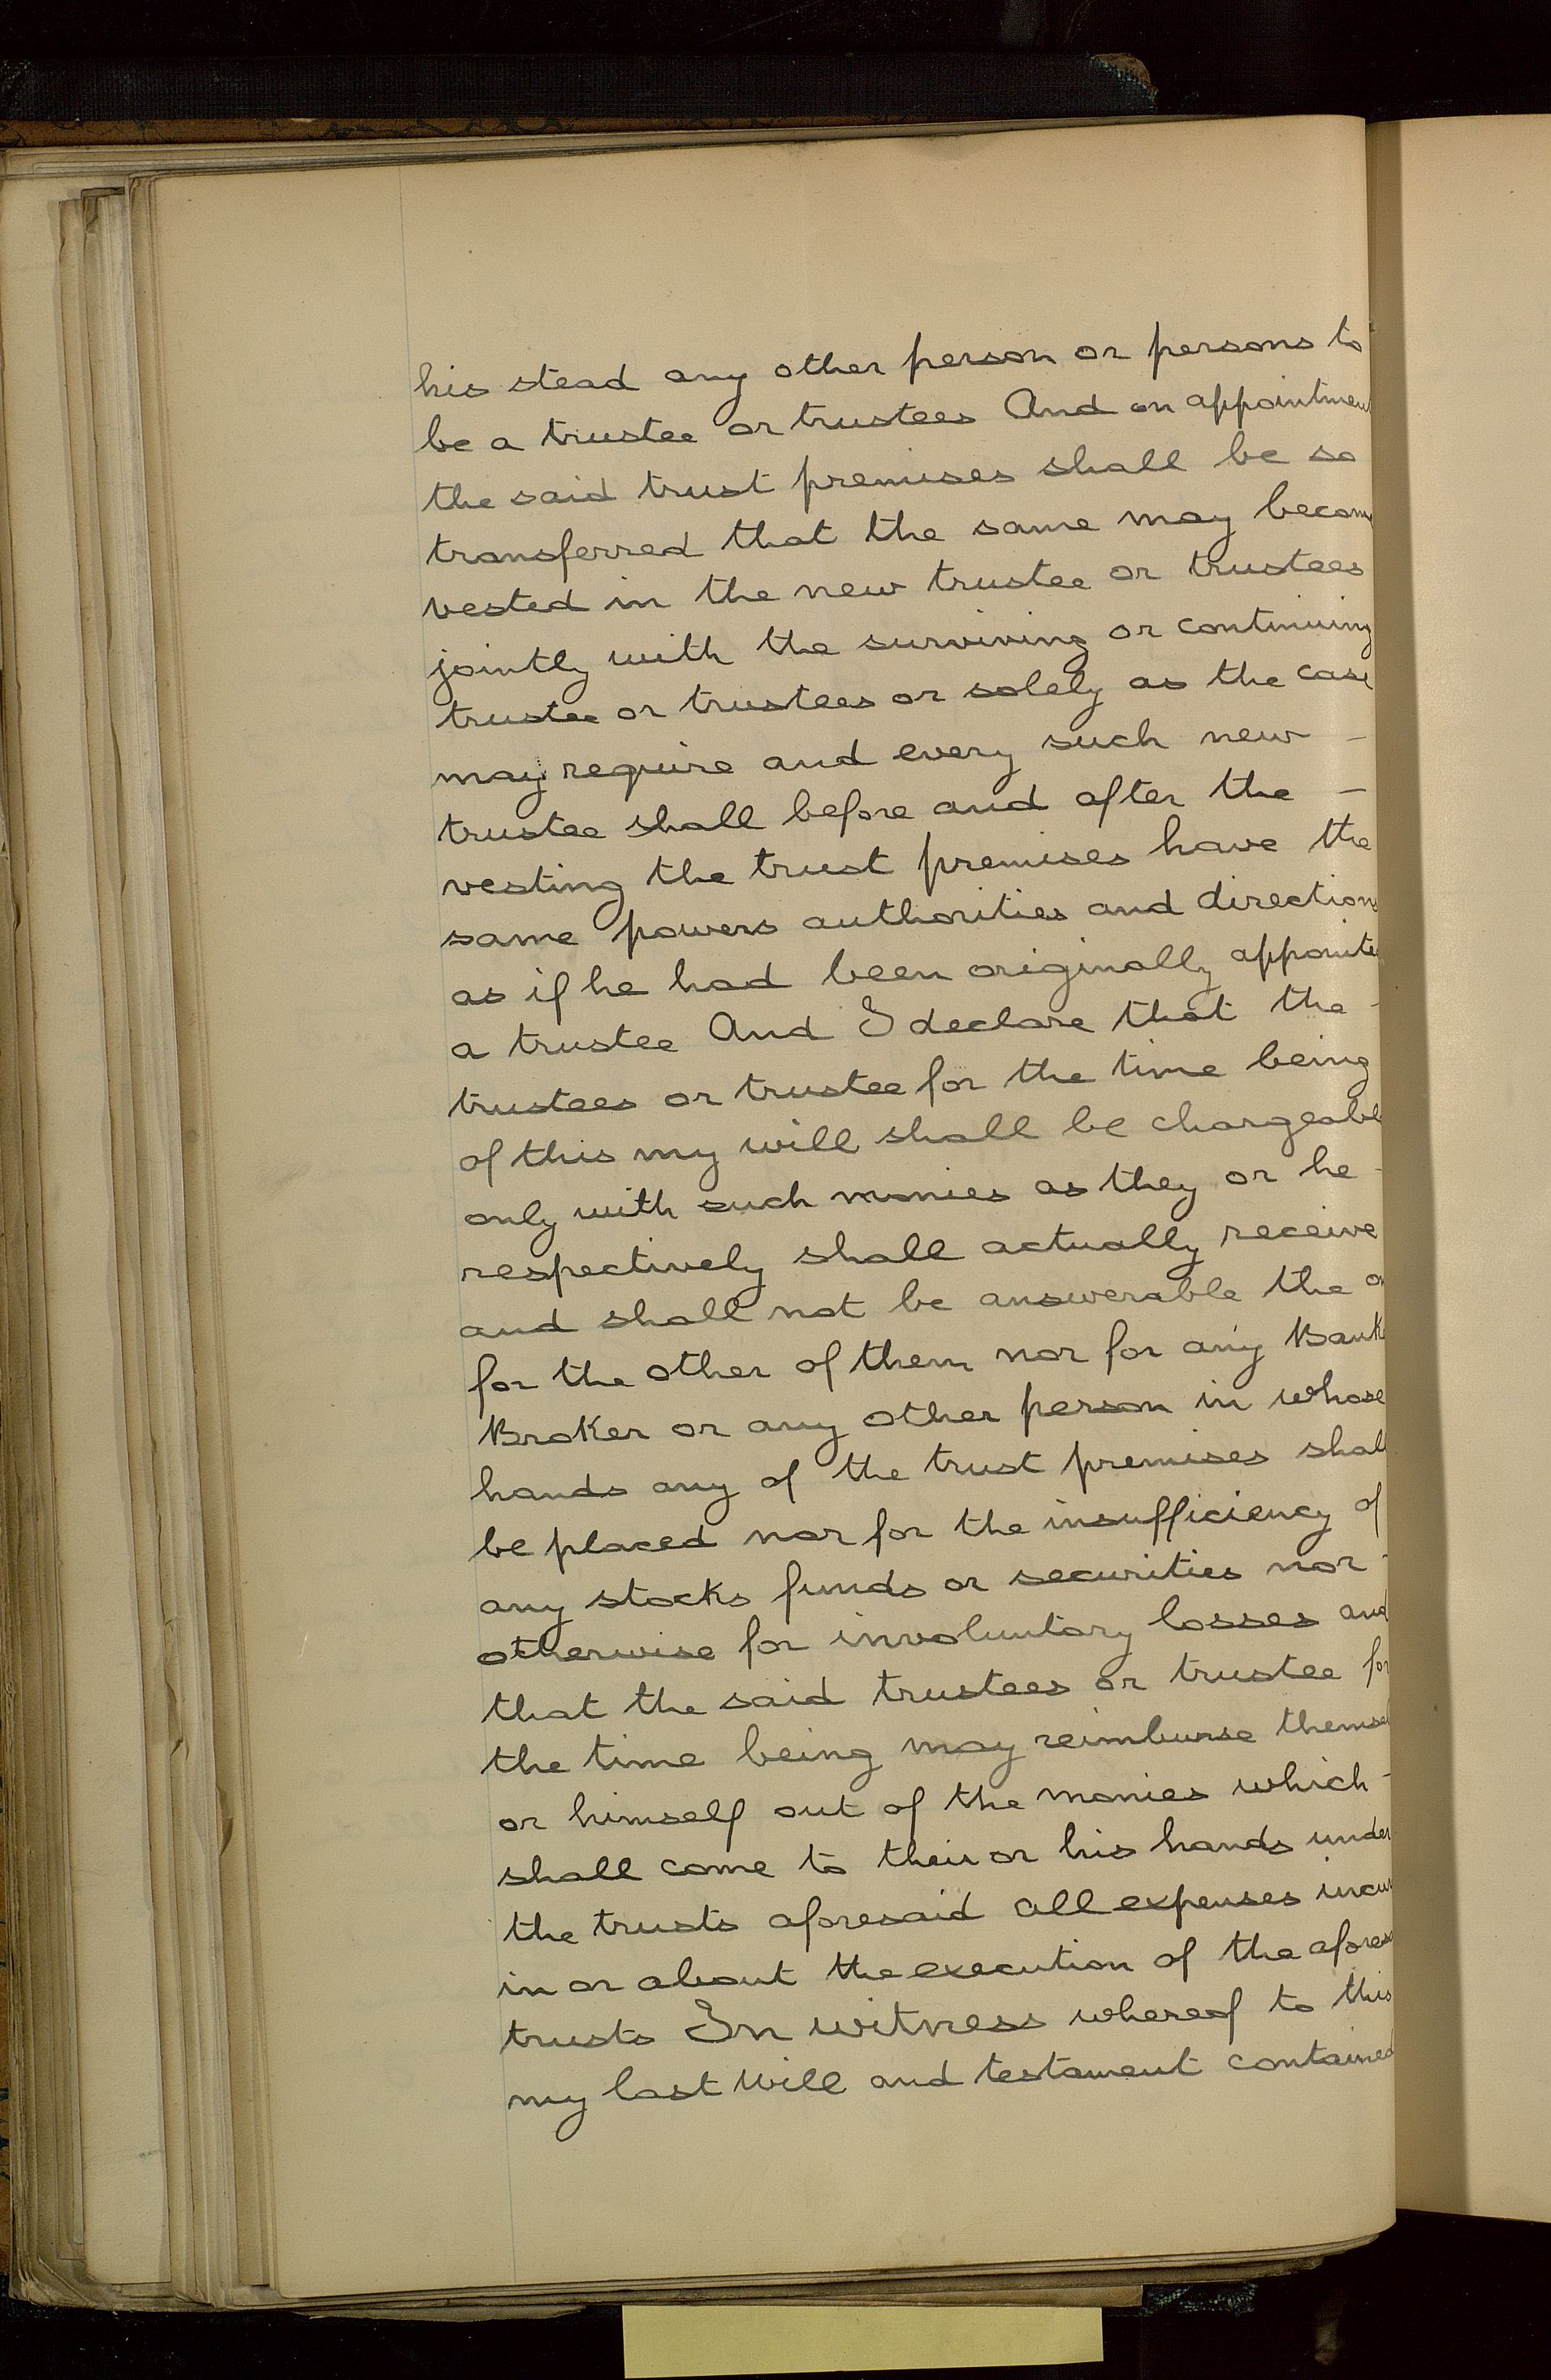 his stead any other person or persons to
be a trustee or trustees And on appointment
the said trust premises shall be so
transferred that the same may become
vested in the new trustee or trustees
jointly with the surviving or continuing
trustee or trustees or solely as the case
may require and every such new –
trustee shall before and after the –
vesting the trust premises have the
same powers authorities and directions
as if he had been originally appointe
a trustee And I declare that the -
trustees or trustee for the time being
of this my will shall be chargeabl
only with such monies as they or he -
respectively shall actually receive
and shall not be answerable the o
for the other of them nor for any Bank
Broker or any other person in whose
hands any of the trust premises shall
be placed nor for the insufficiency of
any stocks funds or securities nor -
otherwise for involuntary losses and
that the said trustees or trustee for
the time being may reimburse themsel
or himself out of the monies which -
shall come to their or his hands under
the trusts aforesaid all expenses incur
in or about the execution of the afores
trusts In witness whereof to this
my last Will and testament contained